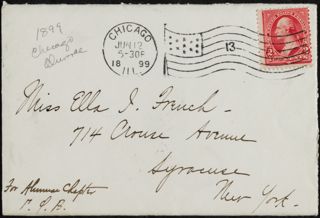 1899
Chicago
CHICAGO
JUN 12
5-30P
18 99
ILL.
13
Miss Ella I. French-
714 Crouse Avenue
Syracuse
New York.
For Alumnae Chapter